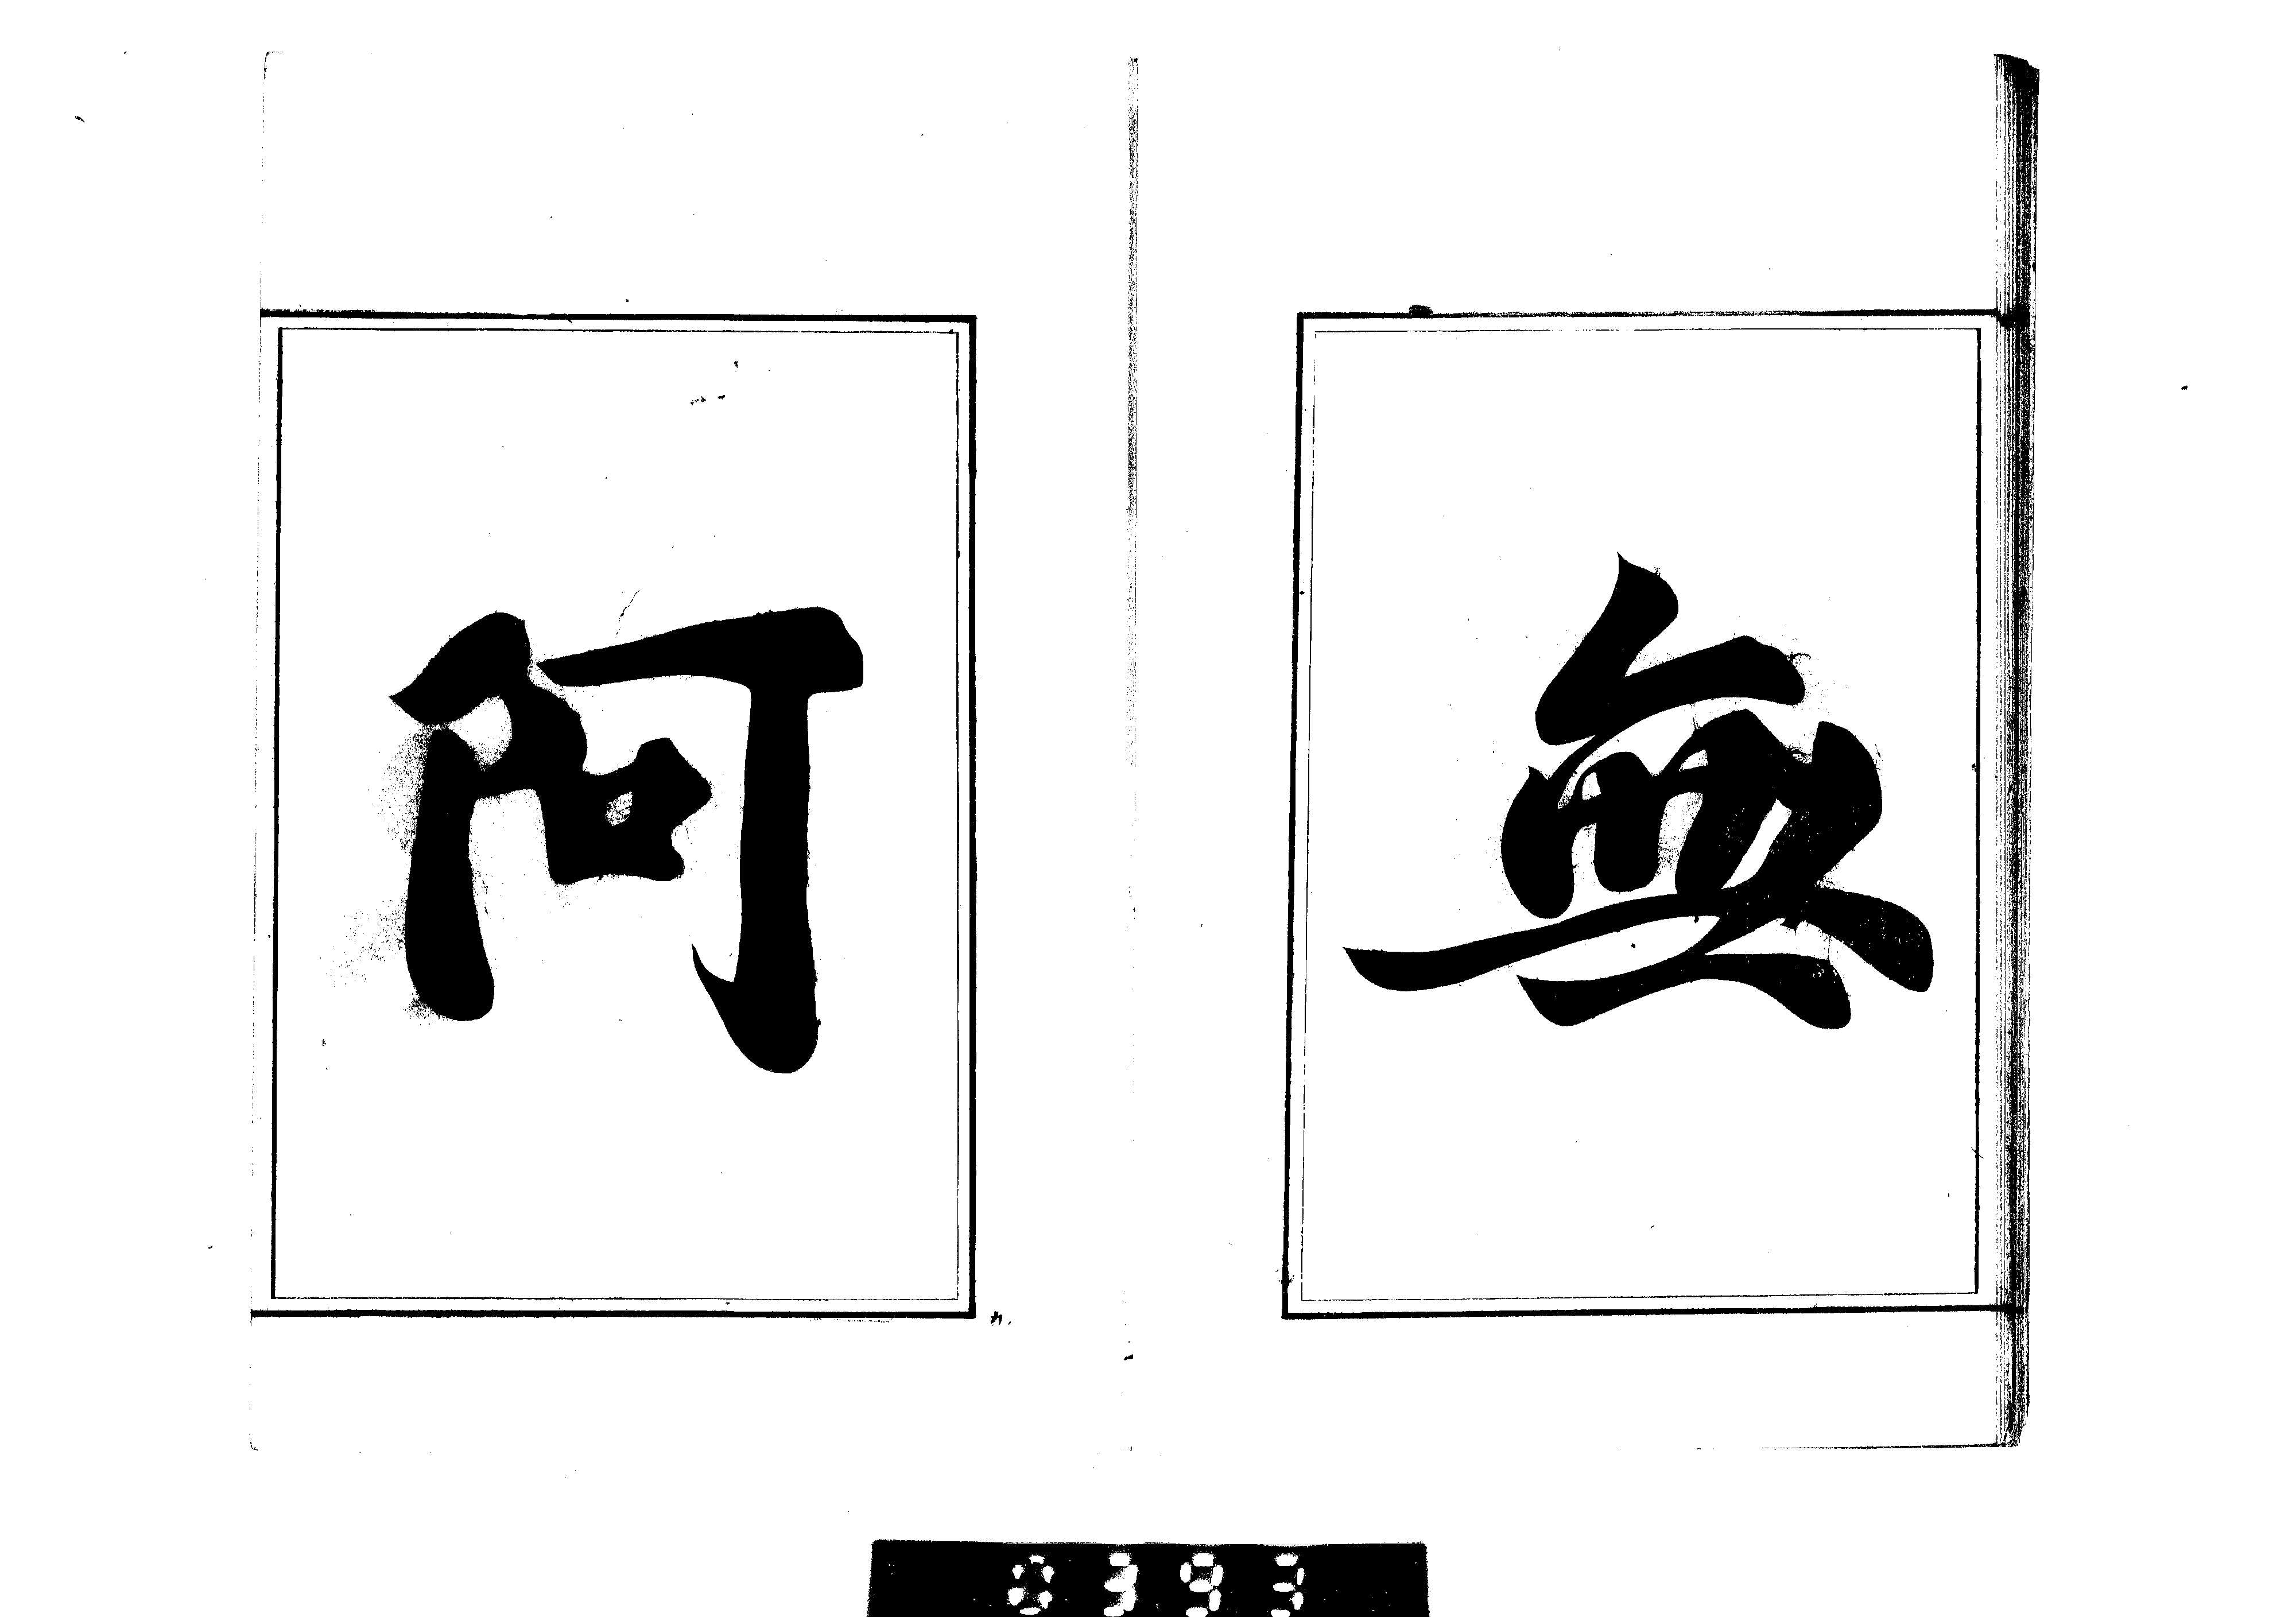 無
阿
0393